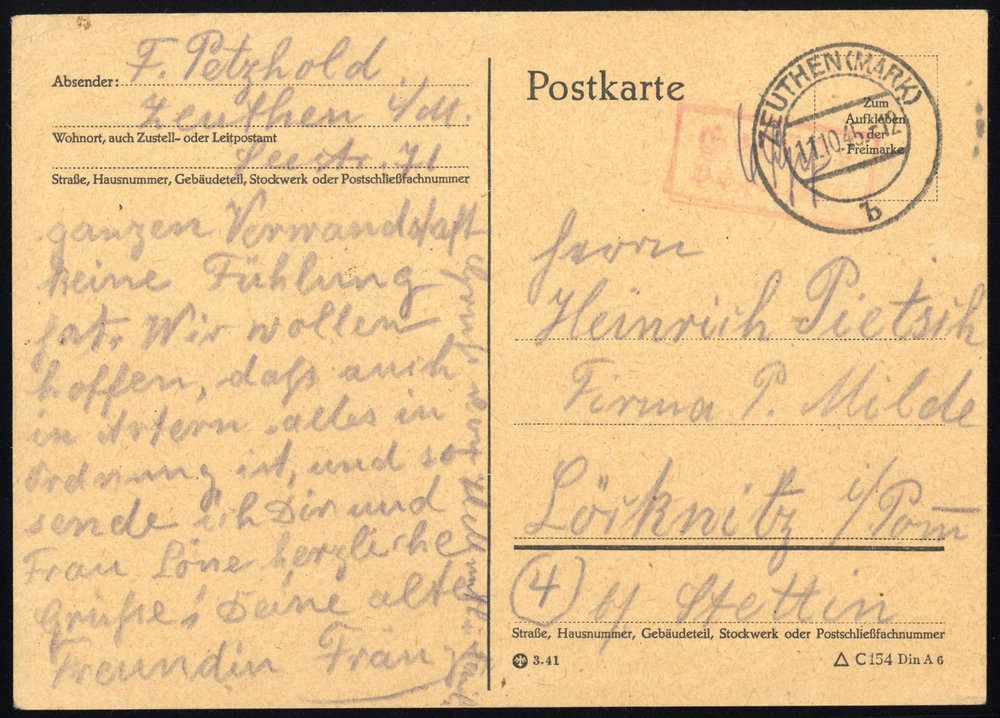 Absender: F. Petzhold
Zeuthen i/M.
Wohnort, auch Zustell- oder Leitpostamt
Seestr. 71
Straße, Hausnummer, Gebäudeteil, Stockwerk oder Postschließfachnummer
ganzen Verwandschaft
keine Fühlung
hat. Wir wollen
hoffen, daß auch
in Artern alles in
Ordnung ist, und so
sende ich Dir und
Frau Löne herzliche
Grüße, Deine alte
Freundin Fränz
Postkarte
ZEUTHEN (MARK)
11.10.45.-12
b
Zum
Aufkleben
der
Freimarke
Herrn
Heinrich Pietsch
Firma P. Milde
Löcknitz i/Pom
(4) b/ Stettin
Straße, Hausnummer, Gebäudeteil, Stockwerk oder Postschließfachnummer
3.41
C 154 Din A 6